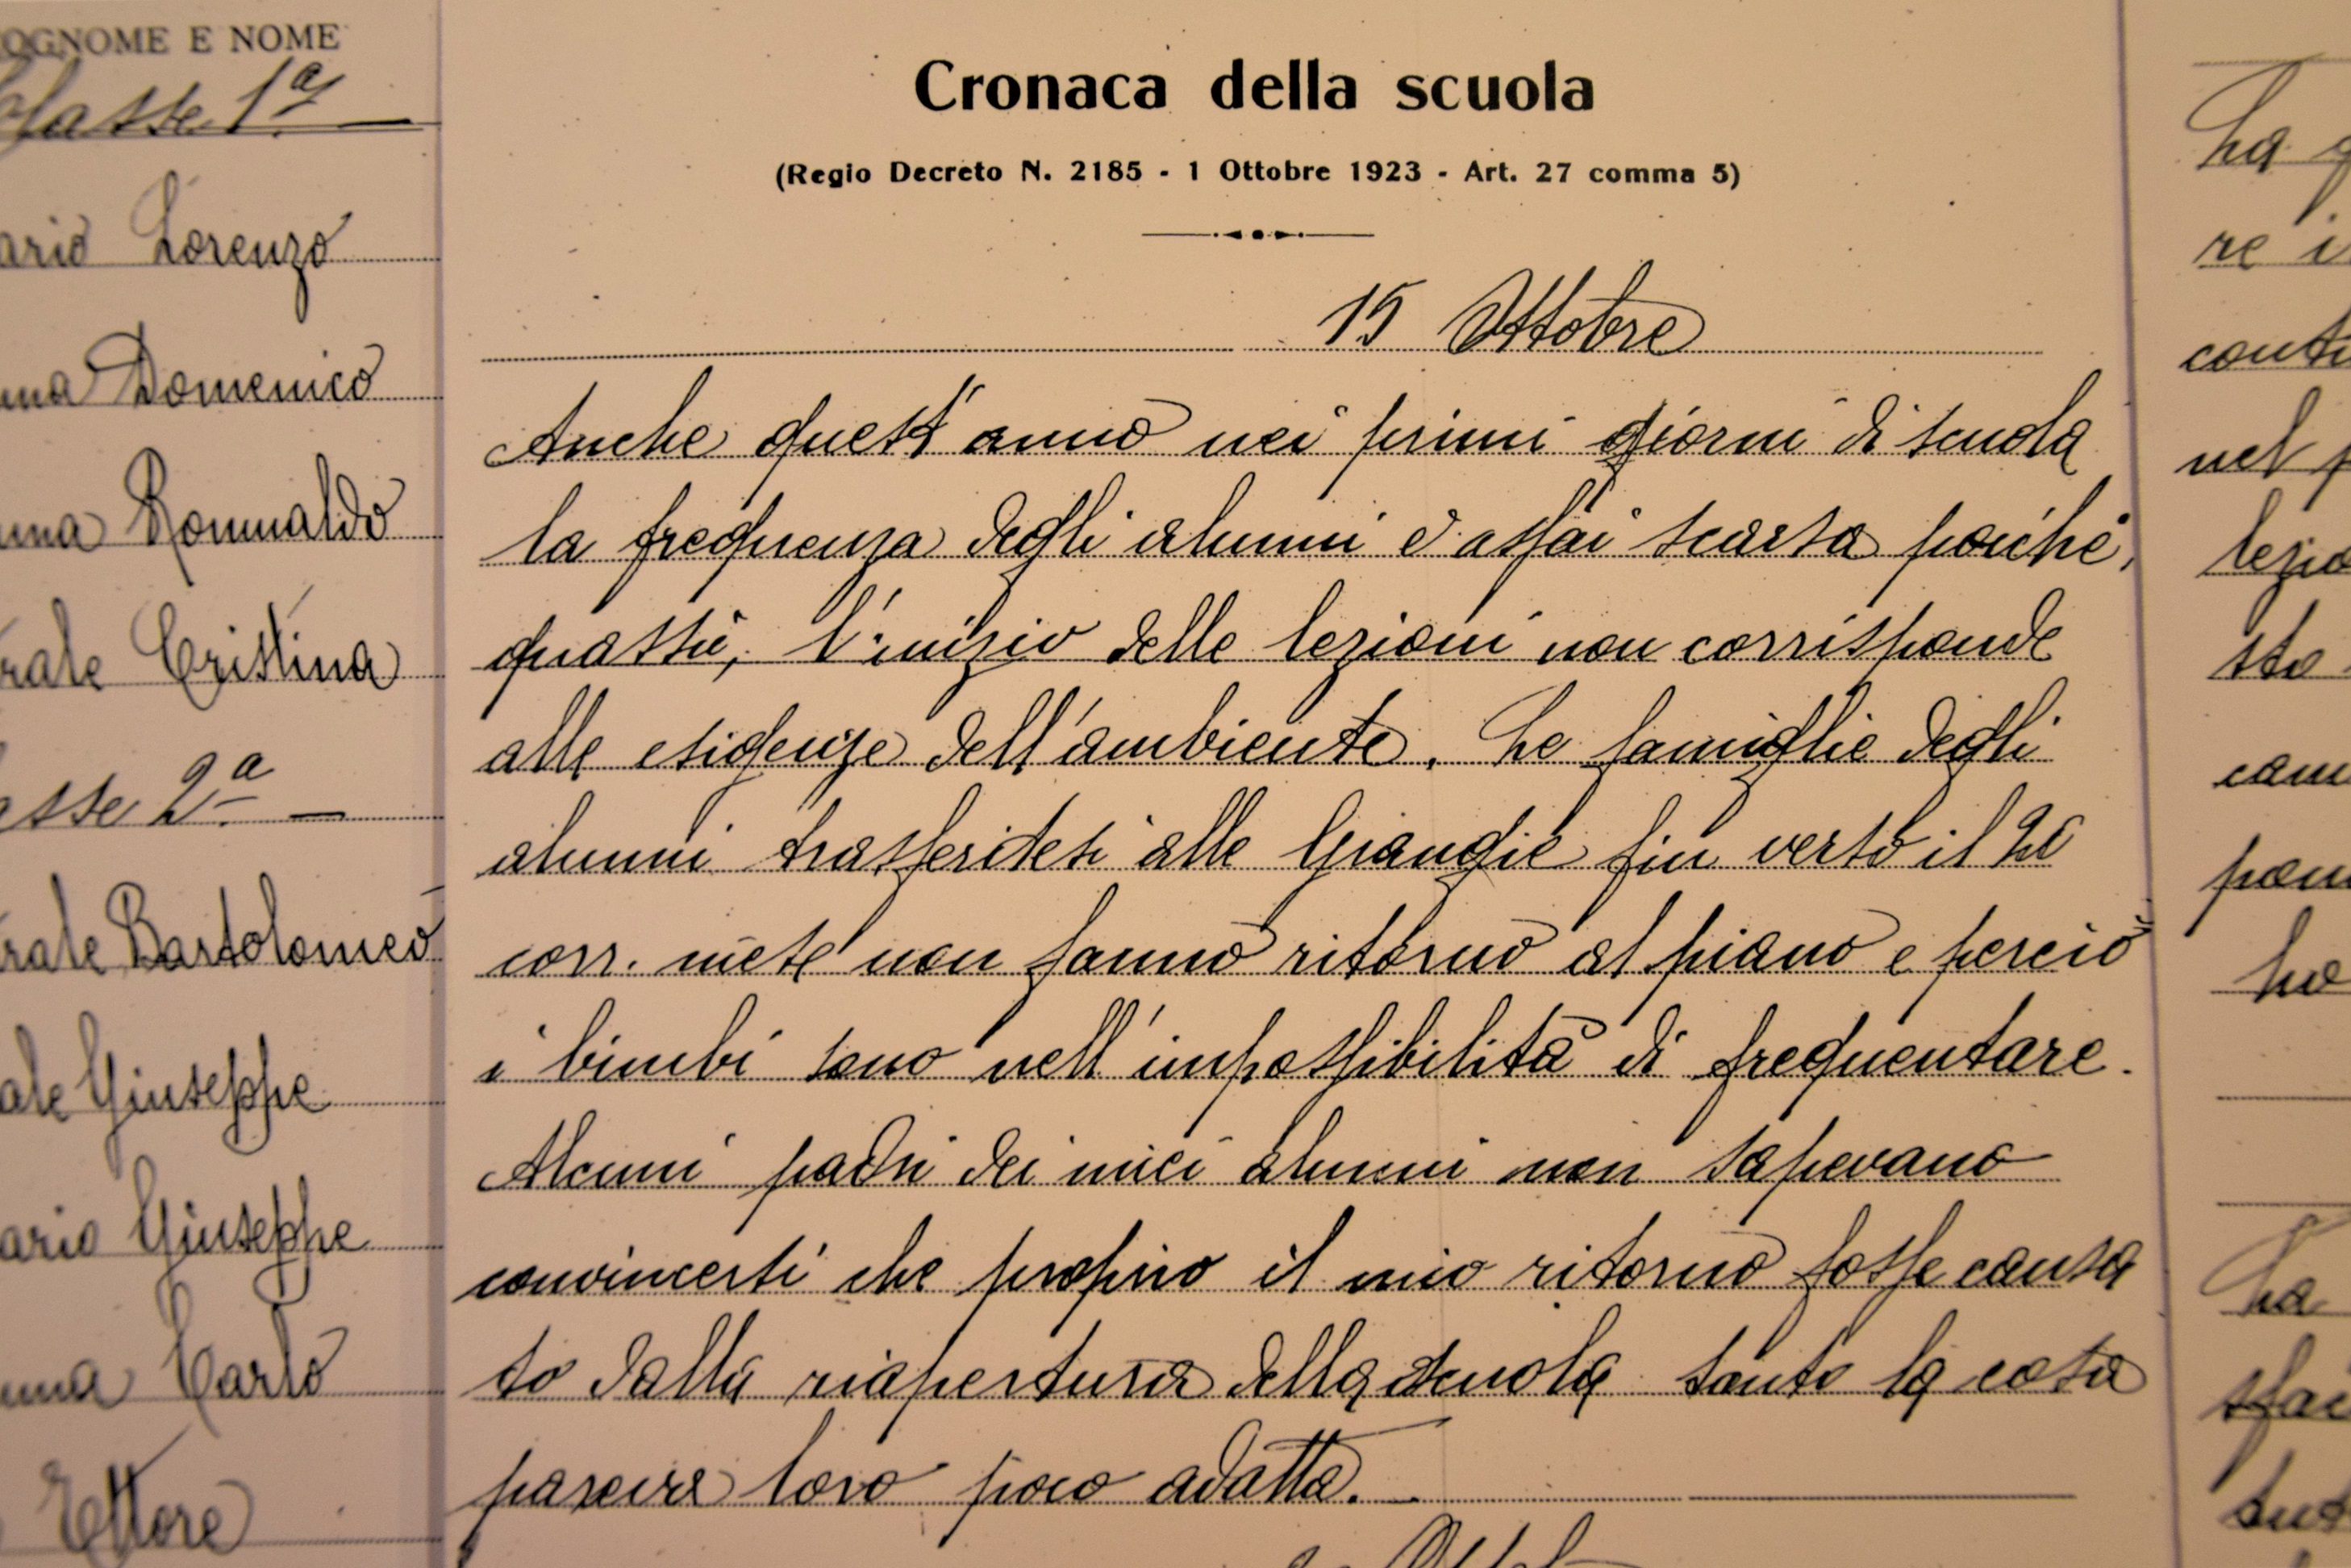 COGNOME E NOME
Classe 1ª
Lorenzo
Domenico
Romualdo
Cristina
Classe 2ª
Bartolomeo
Giuseppe
Giuseppe
Carlo
Ettore
Cronaca della scuola
(Regio Decreto N. 2185 - 1 Ottobre 1923 - Art. 27 comma 5)
15 Ottobre
Anche quest'anno nei primi giorni di scuola
la frequenza degli alunni è assai scarsa poiché,
quassù, l'inizio delle lezioni non corrisponde
alle esigenze dell'ambiente. Le famiglie degli
alunni trasferitesi alle Grangie fin verso il 20
corr. mese non fanno ritorno al piano e perciò
i bimbi sono nell'impossibilità di frequentare.
Alcuni padri dei miei alunni non sapevano
convincersi che proprio il mio ritorno fosse causa
to dalla riapertura della scuola tanto la cosa
pareva loro poco adatta.
ha
re
nel
sto
ho
ha